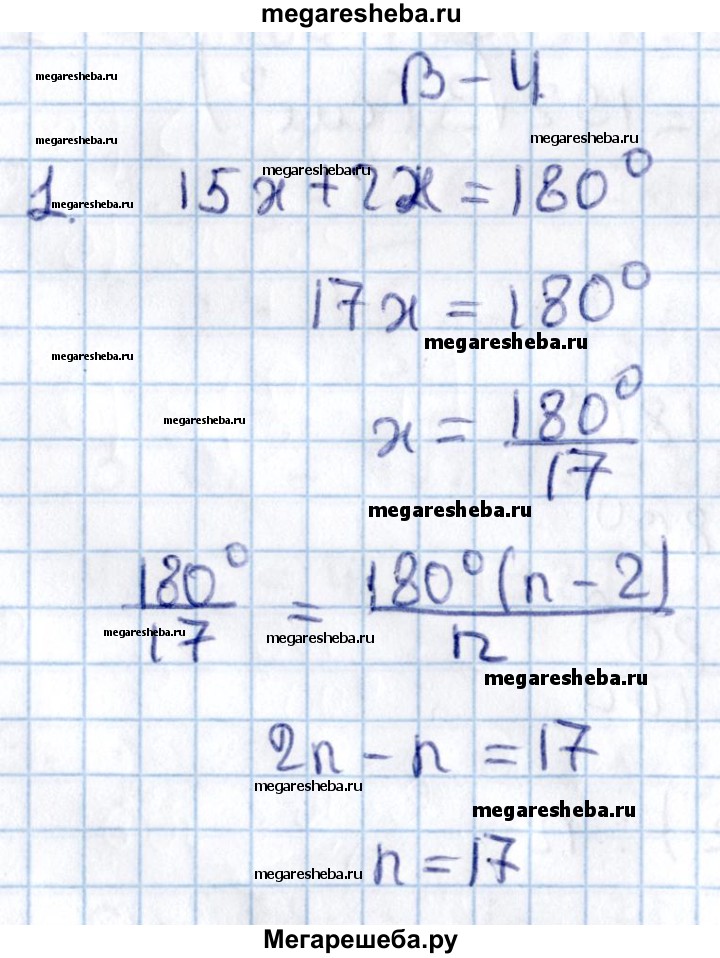 megaresheba.ru
megaresheba.ru
В – 4
megaresheba.ru
megaresheba.ru
megaresheba.ru
1. 15x + 2x = 180°
megaresheba.ru
17x = 180°
megaresheba.ru
megaresheba.ru
megaresheba.ru
x = 180°/17
megaresheba.ru
180°/17 = 180°(n – 2)/n
megaresheba.ru
megaresheba.ru
megaresheba.ru
2n – n = 17
megaresheba.ru
megaresheba.ru
n = 17
megaresheba.ru
Мегарешеба.ру